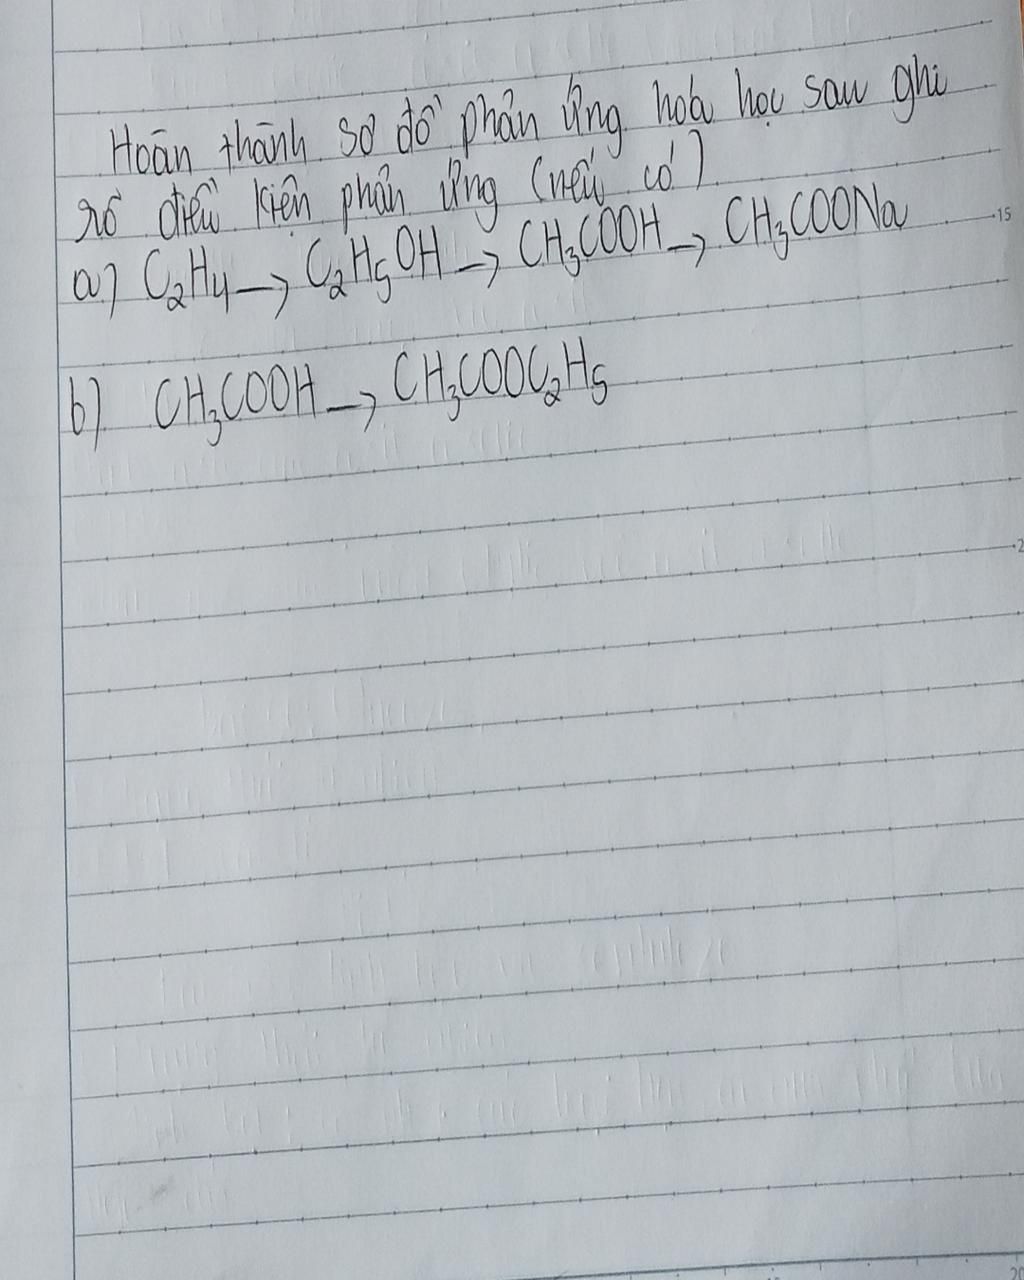 Hoàn thành sơ đồ phản ứng hoá học sau ghi
rõ điều kiện phản ứng (nếu có)
a) C₂H₄ → C₂H₅OH → CH₃COOH → CH₃COONa
15
b) CH₃COOH → CH₃COOC₂H₅
2
20